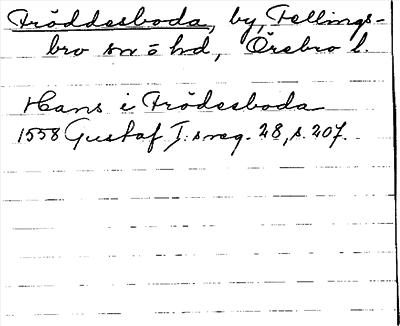 Fröddesboda, by, Fellings-
bro sn o hd, Örebro l.
Hans i Frödesboda
1558 Gustaf I:s reg. 28, s. 207.